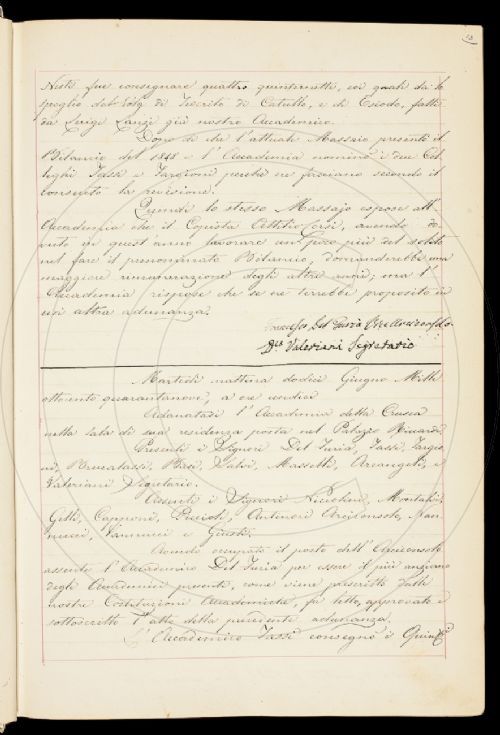 58
Nesti fece consegnare quattro quinternetti, coi quali da lo
spoglio del Volg. di Teocrito di Catullo, e di Esiodo, fatti
da Luigi Lanzi già nostro Accademico.
Dopo di che l'attuale Massaio presentò il
Bilancio del 1848 e l'Accademia nominò i due Col-
leghi Tassi e Targioni perchè ne facciano secondo il
consueto la revisione.
Quindi lo stesso Massajo espose all'
Accademia che il Copista Attilio Corsi, avendo do-
vuto in quest'anno lavorare un poco più del solito
nel fare il prenominato Bilancio, domanderebbe una
maggiore remunerazione degli altri anni; ma l'
Accademia rispose che se ne terrebbe proposito in
un altra adunanza.
Francesco Del Furia
Valeriani Segretario
Martedì mattina dodici Giugno Mille
ottocento quarantanove, a ore undici
Adunatasi l'Accademia della Crusca
nella sala di sua residenza posta nel Palazzo Riccardi
Presenti i Signori Del Furia, Tassi, Targio-
ni, Brucalassi, Basi, Salvi, Masselli, Arcangeli, e
Valeriani Segretario.
Assenti i Signori Niccolini, Montalvi,
Gelli, Capponi, Piccioli, Antinori Arciconsolo, Nan-
nucci, Vannucci e Giusti.
Avendo occupato il posto dell'Arciconsolo
assente l'Accademico Del Furia per essere il più anziano
degli Accademici presenti, come viene prescritto dalle
nostre Costituzioni Accademiche, fu letto, approvato e
sottoscritto l'atto della precedente adunanza.
L'Accademico Tassi consegnò i